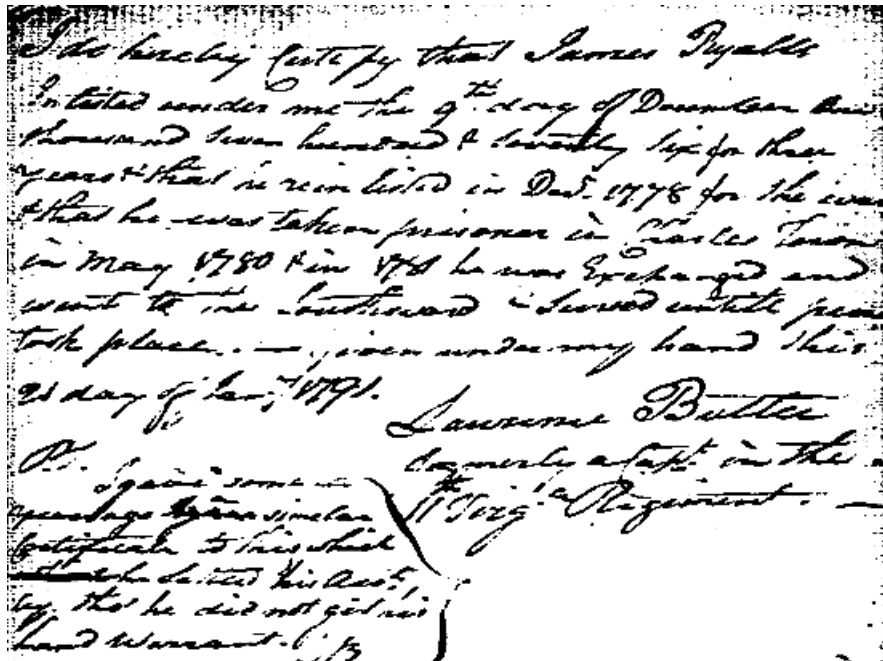 I do hereby Certify that James Ryalls
Inlisted under me the 9th day of December One
thousand Seven hundred & Seventy Six for three
years & that he reinlisted in Decr. 1778 for the war
& that he was taken prisoner in Charles Town
in May 1780 & in 1781 he was Exchanged and
went to the Southward & Served untill peace
took place. — given under my hand this
21 day of Jany. 1791.
Laurence Butler
formerly a Capt. in the
11th Virga. Regiment. —
PS.
I gave some
similar
Certificate to this which
he Settled his Acct.
by, tho' he did not get his
land Warrant. LB